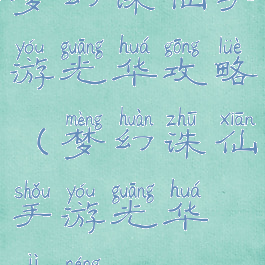 梦幻诛仙手
yóu guāng huá gōng lüè
游光华攻略
mèng huàn zhū xiān
（梦幻诛仙
shǒu yóu guāng huá
手游光华